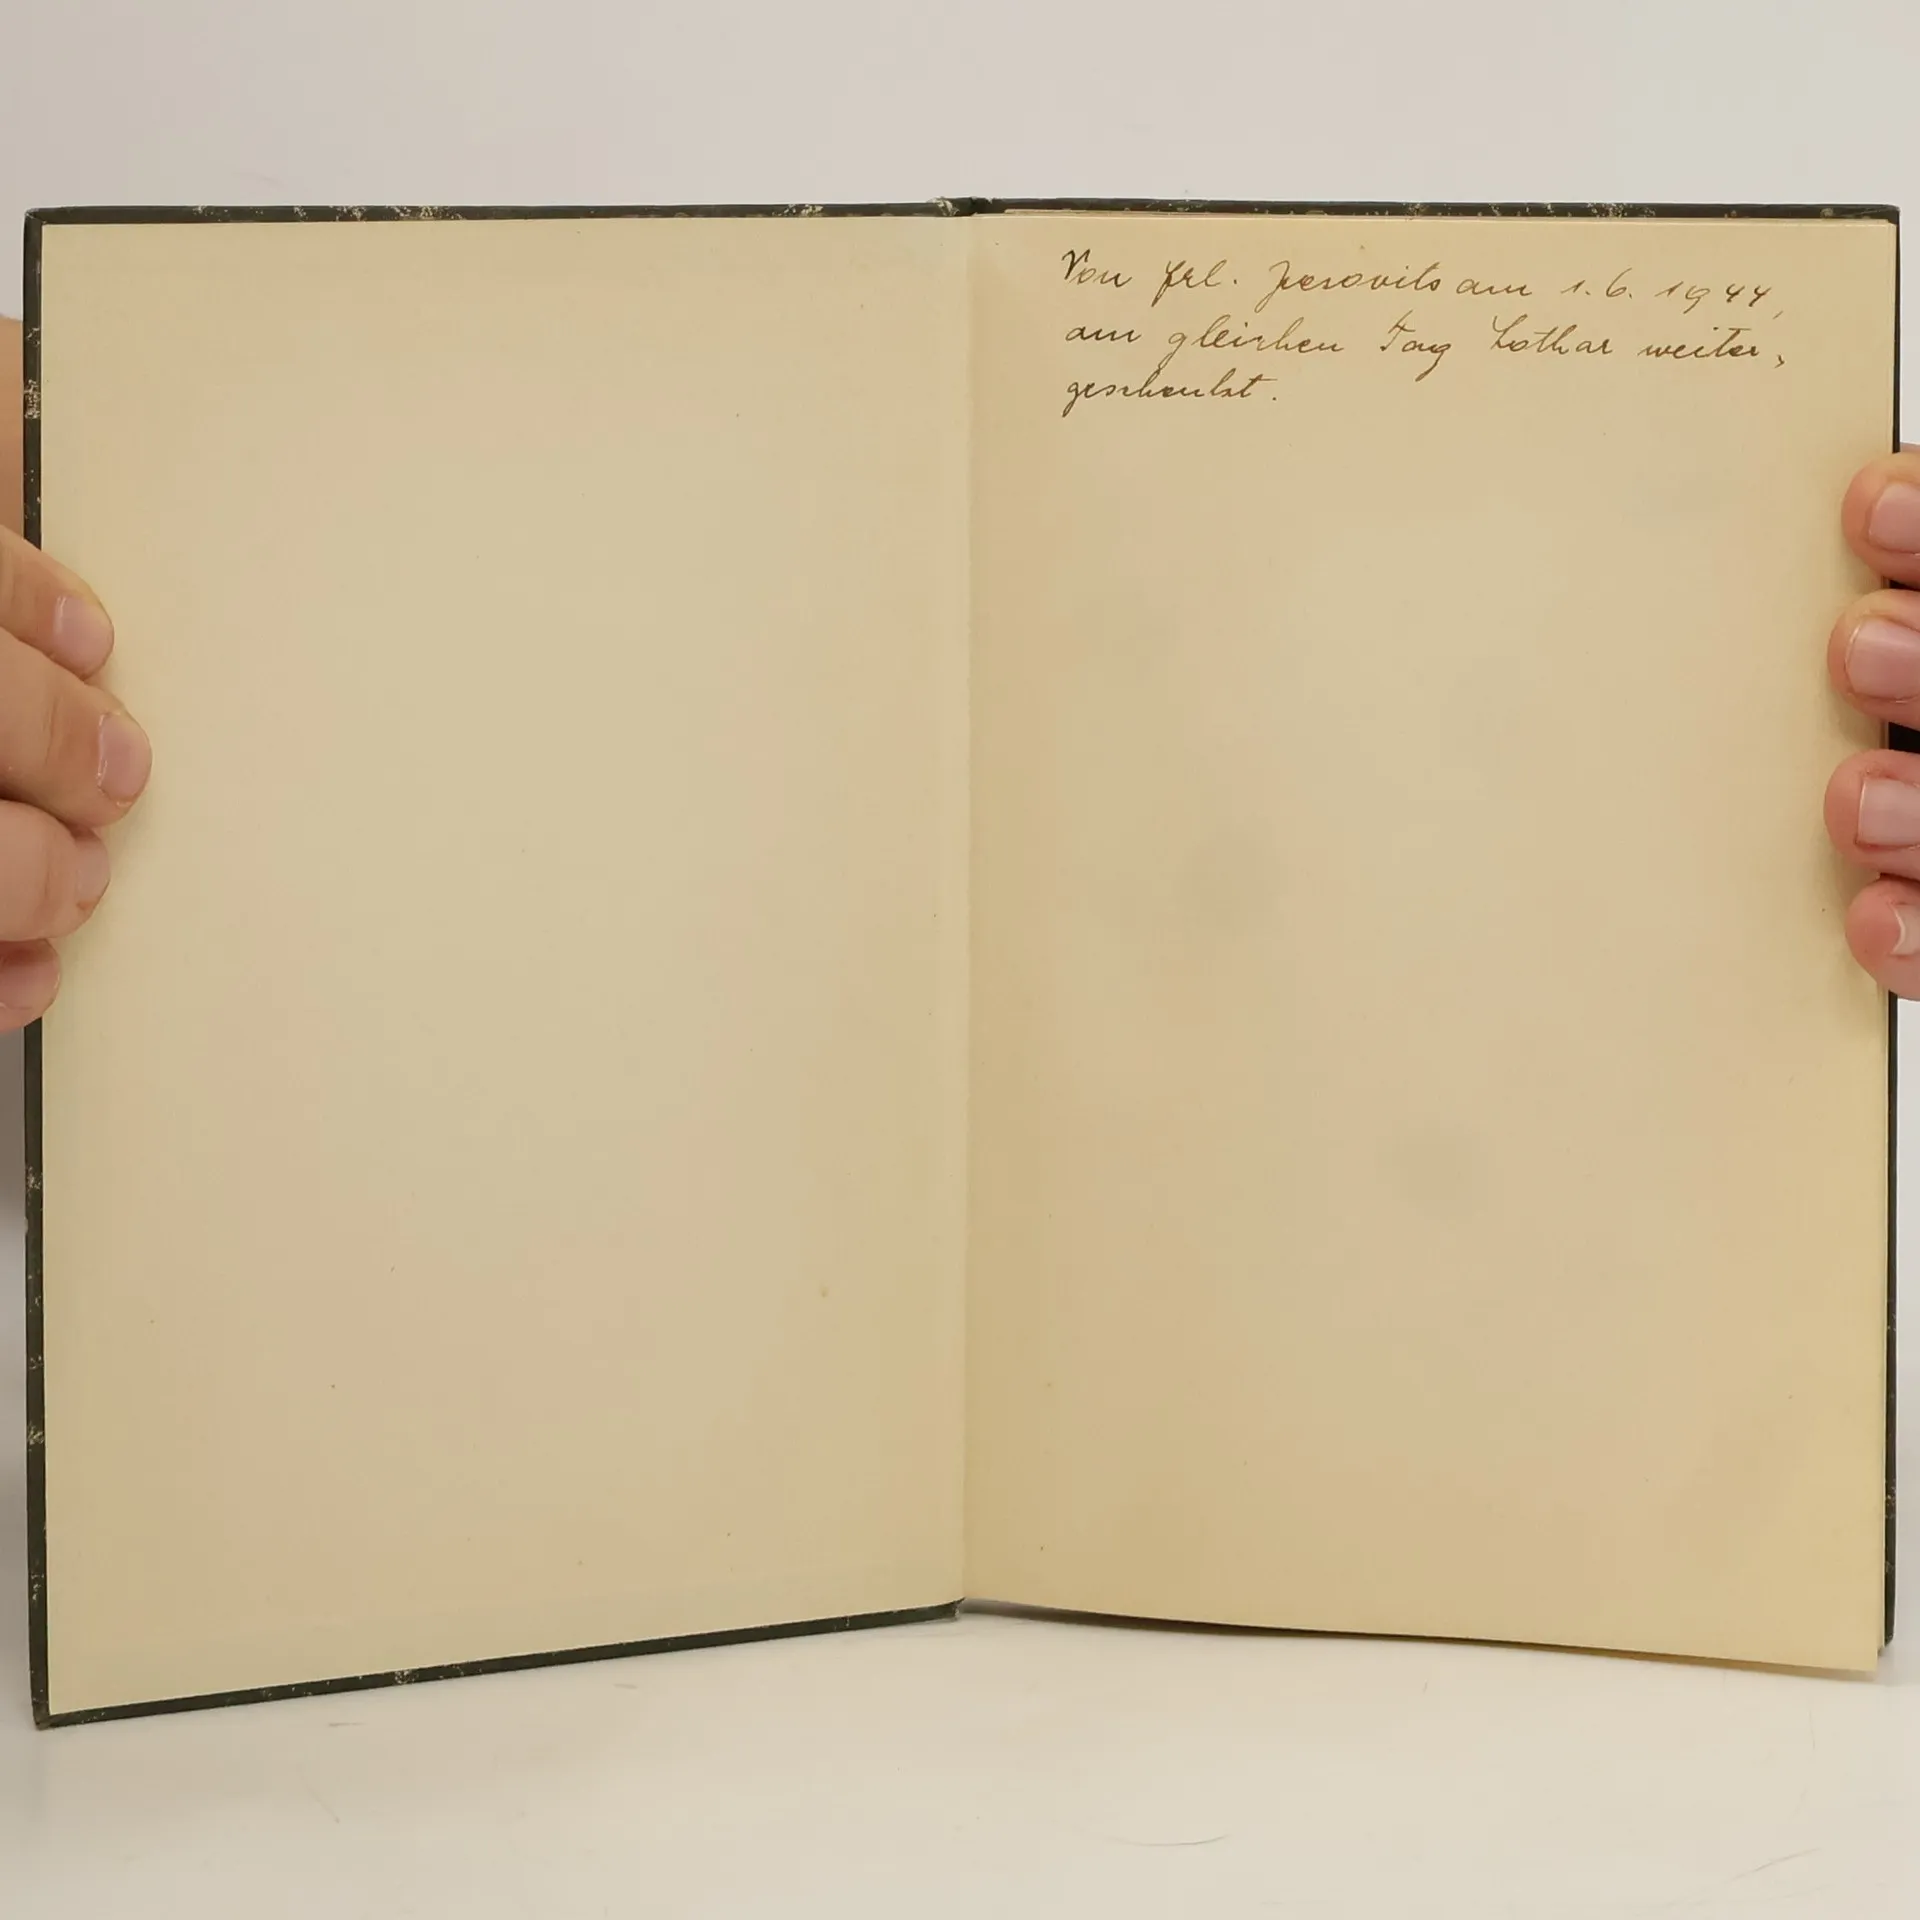 Von Frl. am 1. 6. 1944,
am gleichen Tag Lothar weiter-
geschenkt.